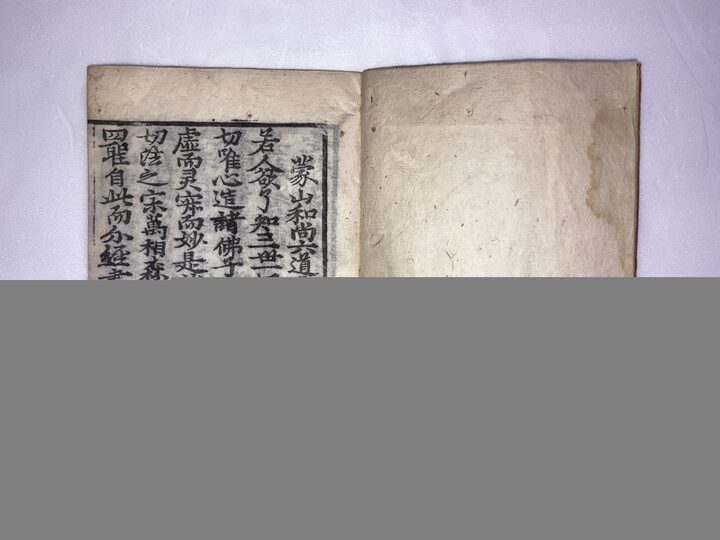 蒙山和尚六道
若人欲了知三世一
切唯心造諸佛子
虛而灵寂而妙是
切法之宗萬相森
四聖自此而分経